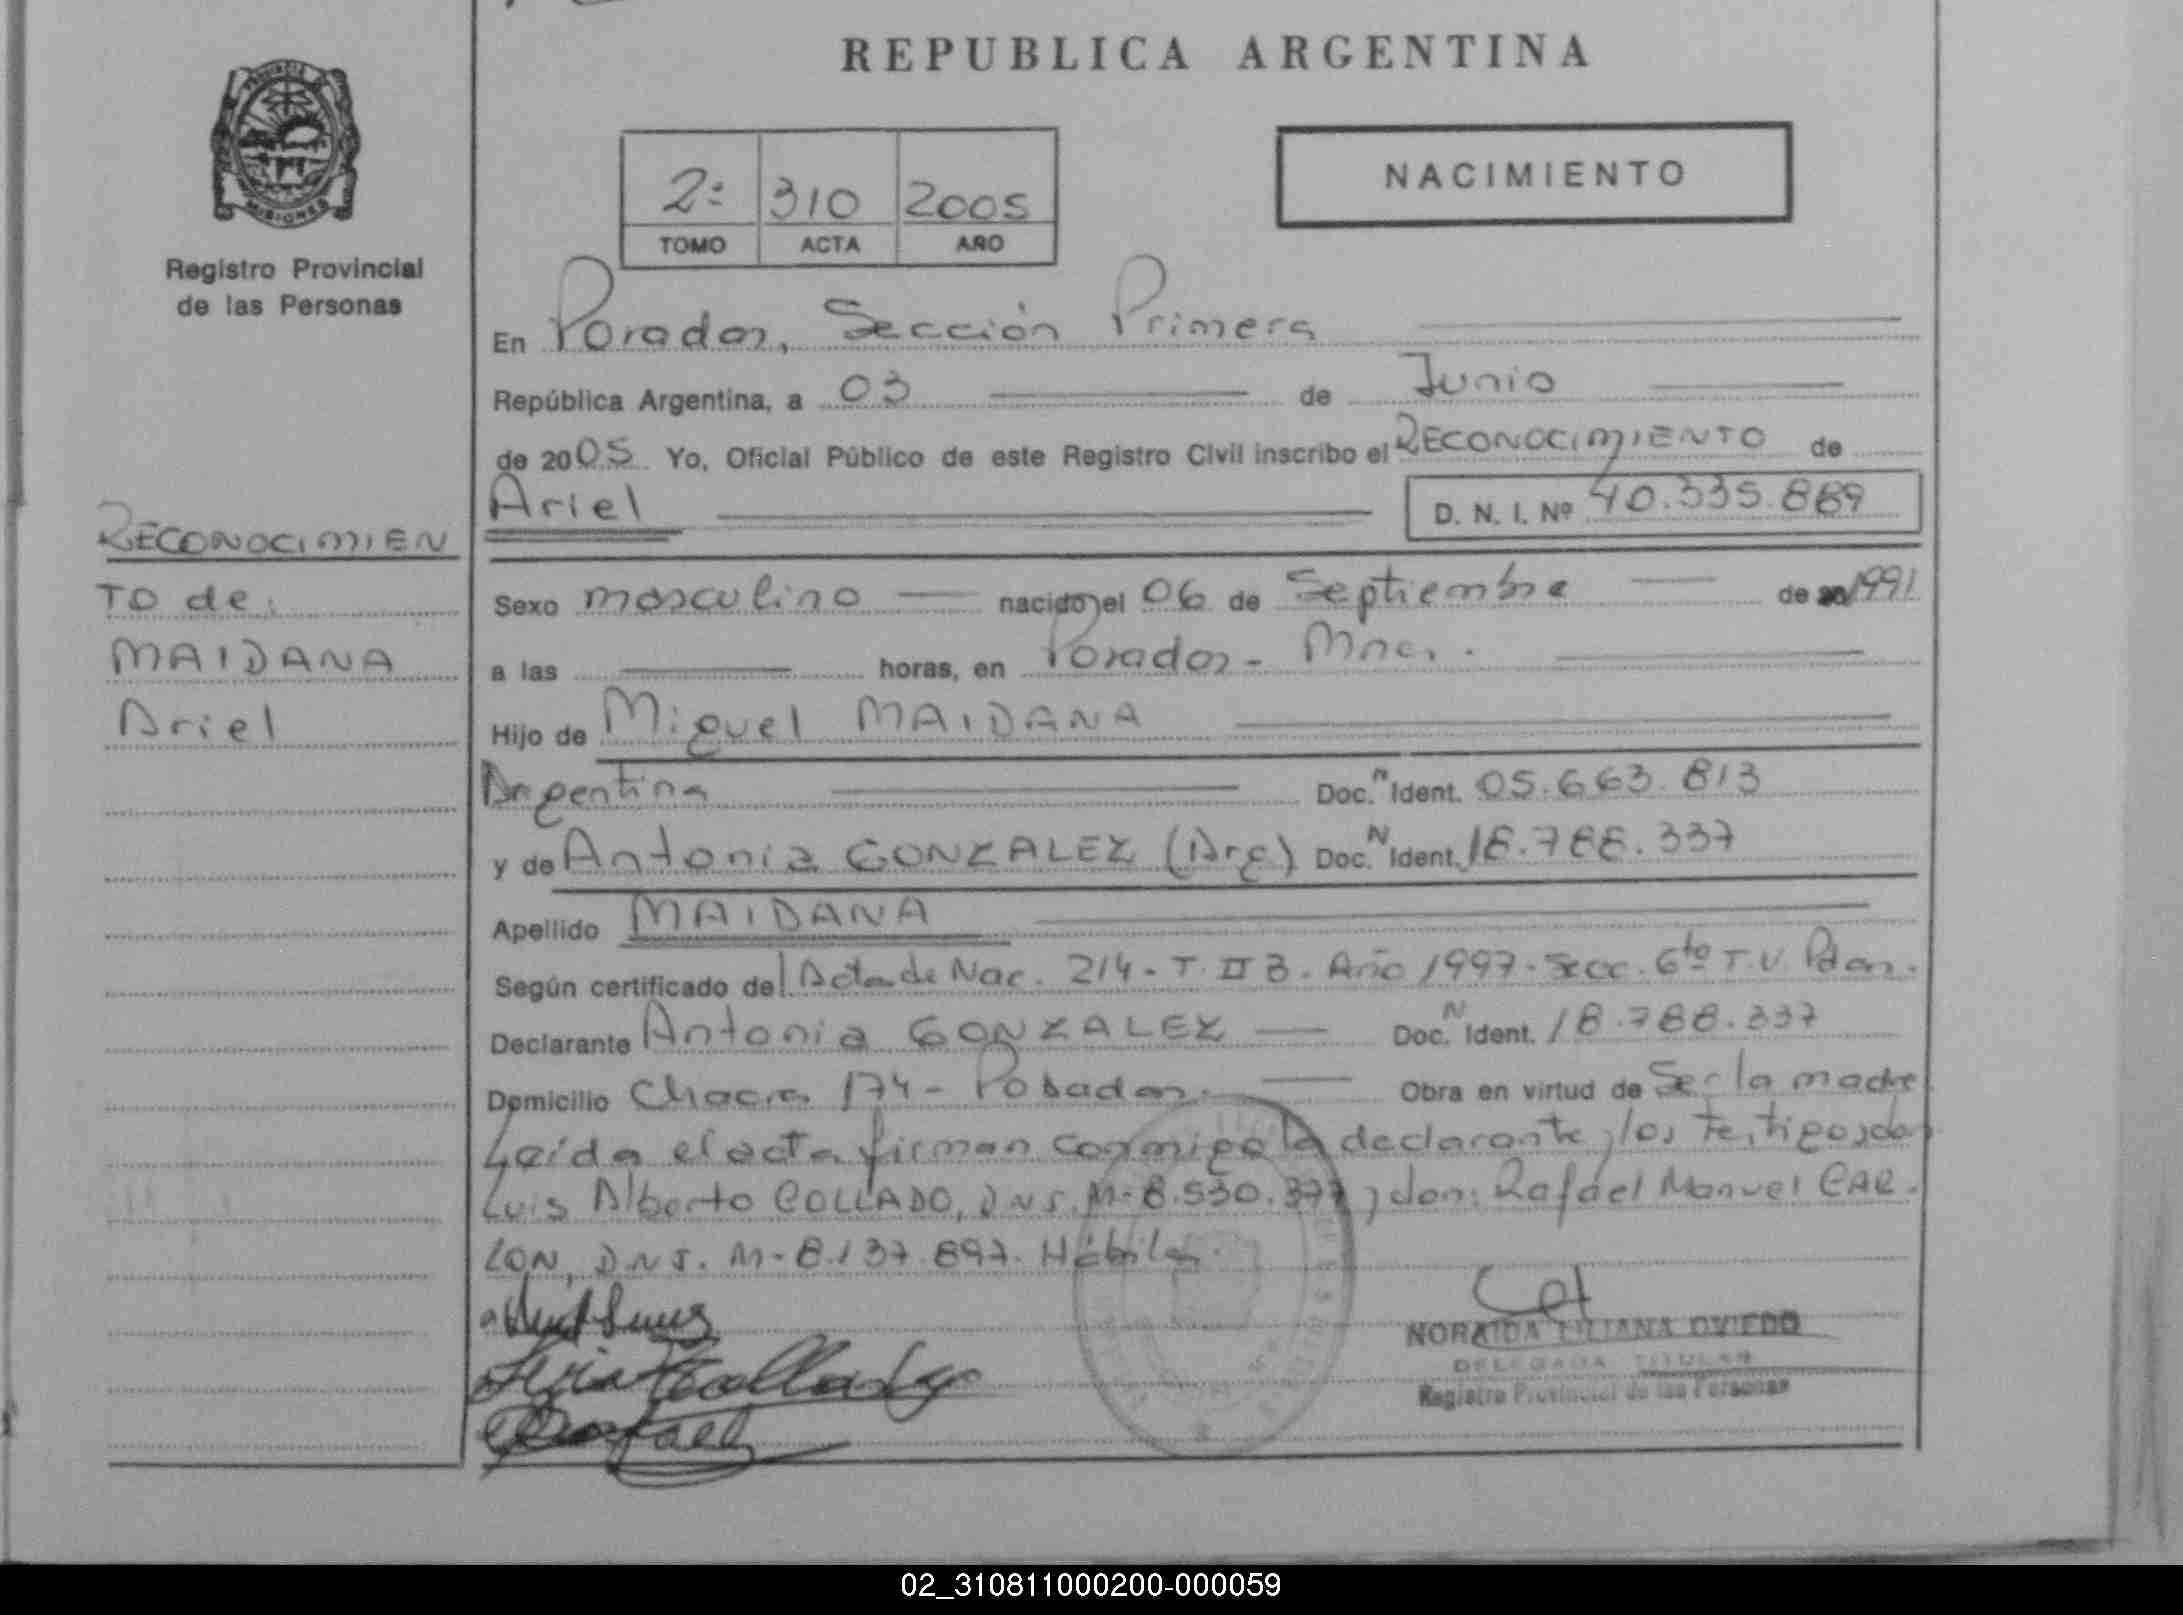 REPUBLICA ARGENTINA
PROVINCIA DE
MISIONES
Registro Provincial
de las Personas
2º 310 2005
TOMO ACTA AÑO
NACIMIENTO
En Posadas, Sección Primera
República Argentina, a 03 de Junio
de 2005 Yo, Oficial Público de este Registro Civil inscribo el RECONOCIMIENTO de
Ariel D. N. I. Nº 40.335.889
RECONOCIMIEN
TO de:
MAIDANA
Ariel
Sexo masculino nacido el 06 de Septiembre de 1991
a las horas, en Posadas - Mnes.
Hijo de Miguel MAIDANA
Argentina Doc. N Ident. 05.663.813
y de Antonia GONZALEZ (Arg) Doc. N Ident. 18.788.337
Apellido MAIDANA
Según certificado del Acta de Nac. 214 - T. II B - Año 1997 - Secc. 6ta T.V. Pdas.
Declarante Antonia GONZALEZ Doc. N Ident. 18.788.337
Domicilio Chacra 174 - Posadas. Obra en virtud de Ser la madre
Leída el acta firman conmigo la declarante, los testigos, don
Luis Alberto COLLADO, D.N.I. M-8.530.377, don: Rafael Manuel CAR-
ZON, D.N.I. M-8.137.897. Hábiles.
NORAIDA LILIANA OVIEDO
DELEGADA TITULAR
Registro Provincial de las Personas
02_310811000200-000059